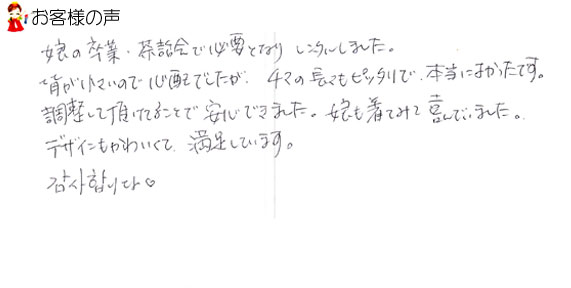 お客様の声
娘の卒業・茶話会で必要となり レンタルしました。
背が小さいので心配でしたが、チマの長さもピッタリで、本当によかったです。
調整して頂けてることで安心できました。娘も着てみて喜んでいました。
デザインもかわいくて、満足しています。
감사합니다♡